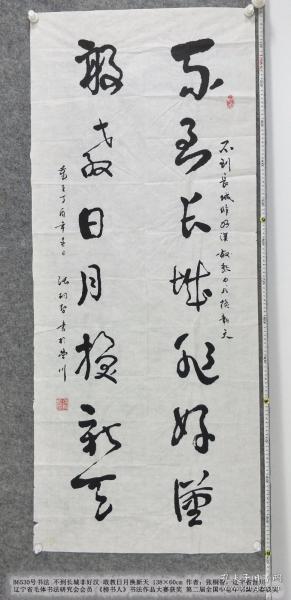 不到长城非好汉
敢教日月换新天
不到长城非好汉 敢教日月换新天
岁在丁酉年
书于营川
B6530号书法 不到长城非好汉 敢教日月换新天 138×60cm 作者：张桐智，辽宁省营川
辽宁省毛体书法研究会会员 《榜书人》书法作品大赛获奖 第二届全国